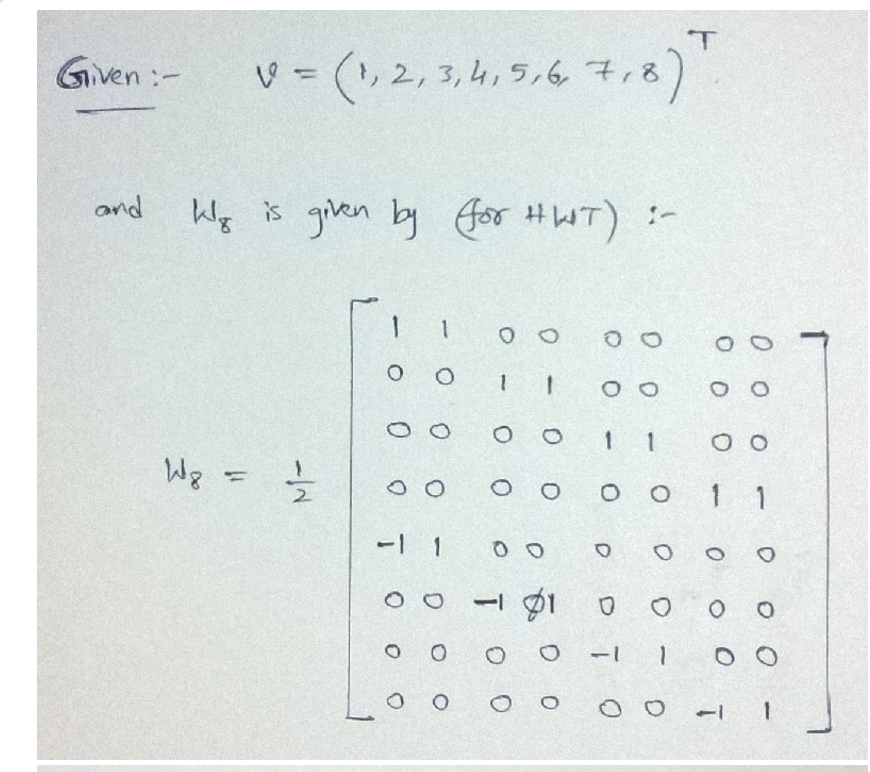 Given :- v = (1, 2, 3, 4, 5, 6, 7, 8)^T
and W₈ is given by (for HWT) :-
1 1 0 0 0 0 0 0
0 0 1 1 0 0 0 0
0 0 0 0 1 1 0 0
W₈ = 1/2 0 0 0 0 0 0 1 1
-1 1 0 0 0 0 0 0
0 0 -1 1 0 0 0 0
0 0 0 0 -1 1 0 0
0 0 0 0 0 0 -1 1